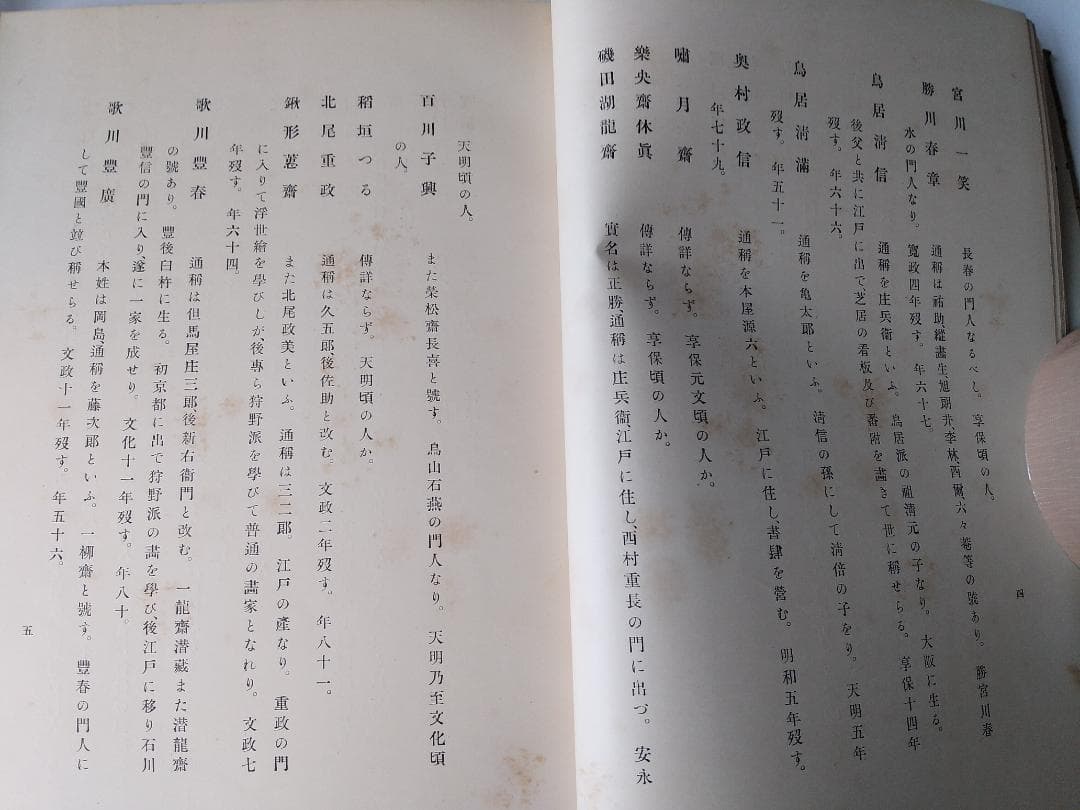 四
宮川一笑 長春の門人なるべし。享保頃の人。
勝川春章 通稱は祐助、縱畫生、旭朗井、李林、酉爾、六々庵等の號あり。勝宮川春
水の門人なり。寬政四年歿す。年六十七。
鳥居淸信 通稱を庄兵衞といふ。鳥居派の祖淸元の子なり。大阪に生る。
後父と共に江戸に出で、芝居の看板及び番附を畵きて世に稱せらる。享保十四年
歿す。年六十六。
鳥居淸滿 通稱を亀太郎といふ。淸信の孫にして淸倍の子をり。天明五年
歿す。年五十一。
奥村政信 通稱を本屋源六といふ。江戸に住し、書肆を營む。明和五年歿す。
年七十九。
嘯月齋 傳詳ならず。享保元文頃の人か。
樂央齋休眞 傳詳ならず。享保頃の人か。
磯田湖龍齋 實名は正勝、通稱は庄兵衞、江戸に住し、西村重長の門に出づ。安永
天明頃の人。
百川子興 また榮松齋長喜と號す。鳥山石燕の門人なり。天明乃至文化頃
の人。
稻垣つる 傳詳ならず。天明頃の人か。
北尾重政 通稱は久五郎、後佐助と改む。文政二年歿す。年八十一。
鍬形蕙齋 また北尾政美といふ。通稱は三二郎。江戸の產なり。重政の門
に入りて浮世繪を學びしが、後專ら狩野派を學びて普通の畵家となれり。文政七
年歿す。年六十四。
歌川豐春 通稱は但馬屋庄三郎後新右衞門と改む。一龍齋潜藏また潜龍齋
の號あり。豐後臼杵に生る。初京都に出で狩野派の畵を學び、後江戸に移り石川
豐信の門に入り、遂に一家を成せり。文化十一年歿す。年八十。
歌川豐廣 本姓は岡島、通稱を藤次郎といふ。一柳齋と號す。豐春の門人に
して豐國と竝び稱せらる。文政十一年歿す。年五十六。
五